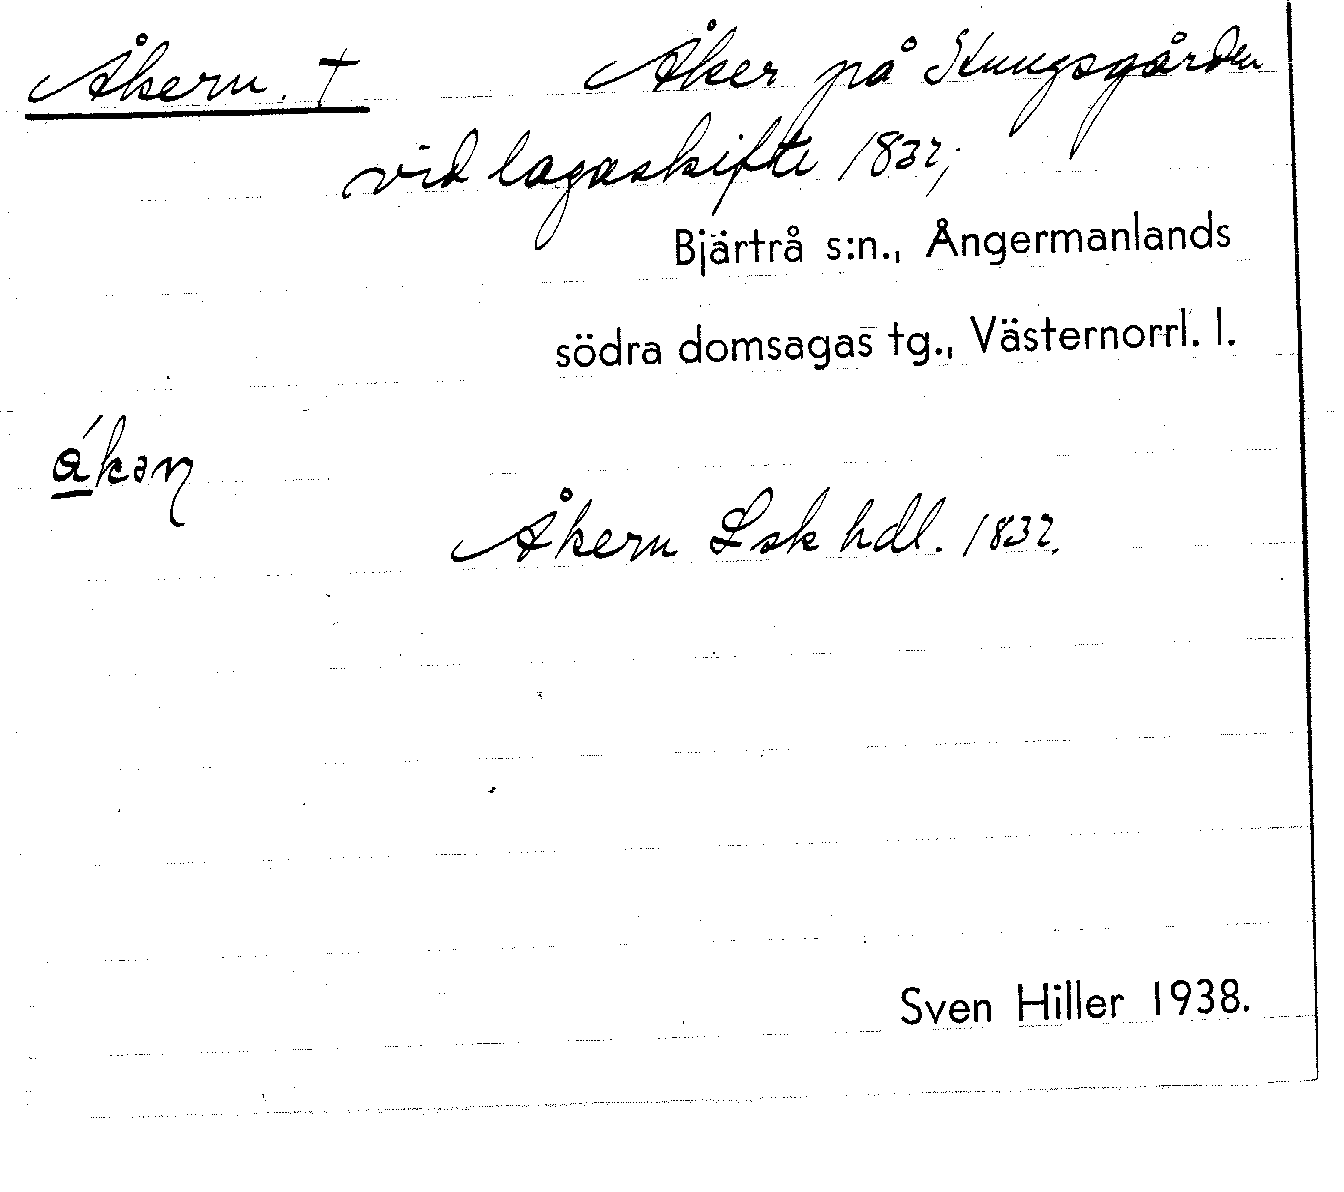 Åkern. † Åker på Kungsgården
vid lagaskifte 1832;
Bjärtrå s:n., Ångermanlands
södra domsagas tg., Västernorrl. l.
Åkern Lsk hdl. 1832.
Sven Hiller 1938.